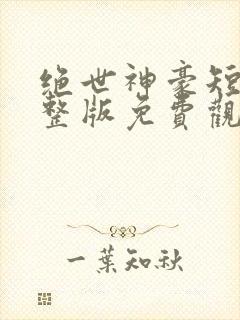 绝世神豪短
整版免費觀
一葉知秋